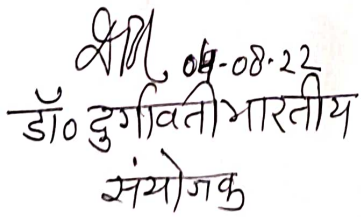 04-08-22
डॉ० दुर्गावती भारतीय
संयोजक